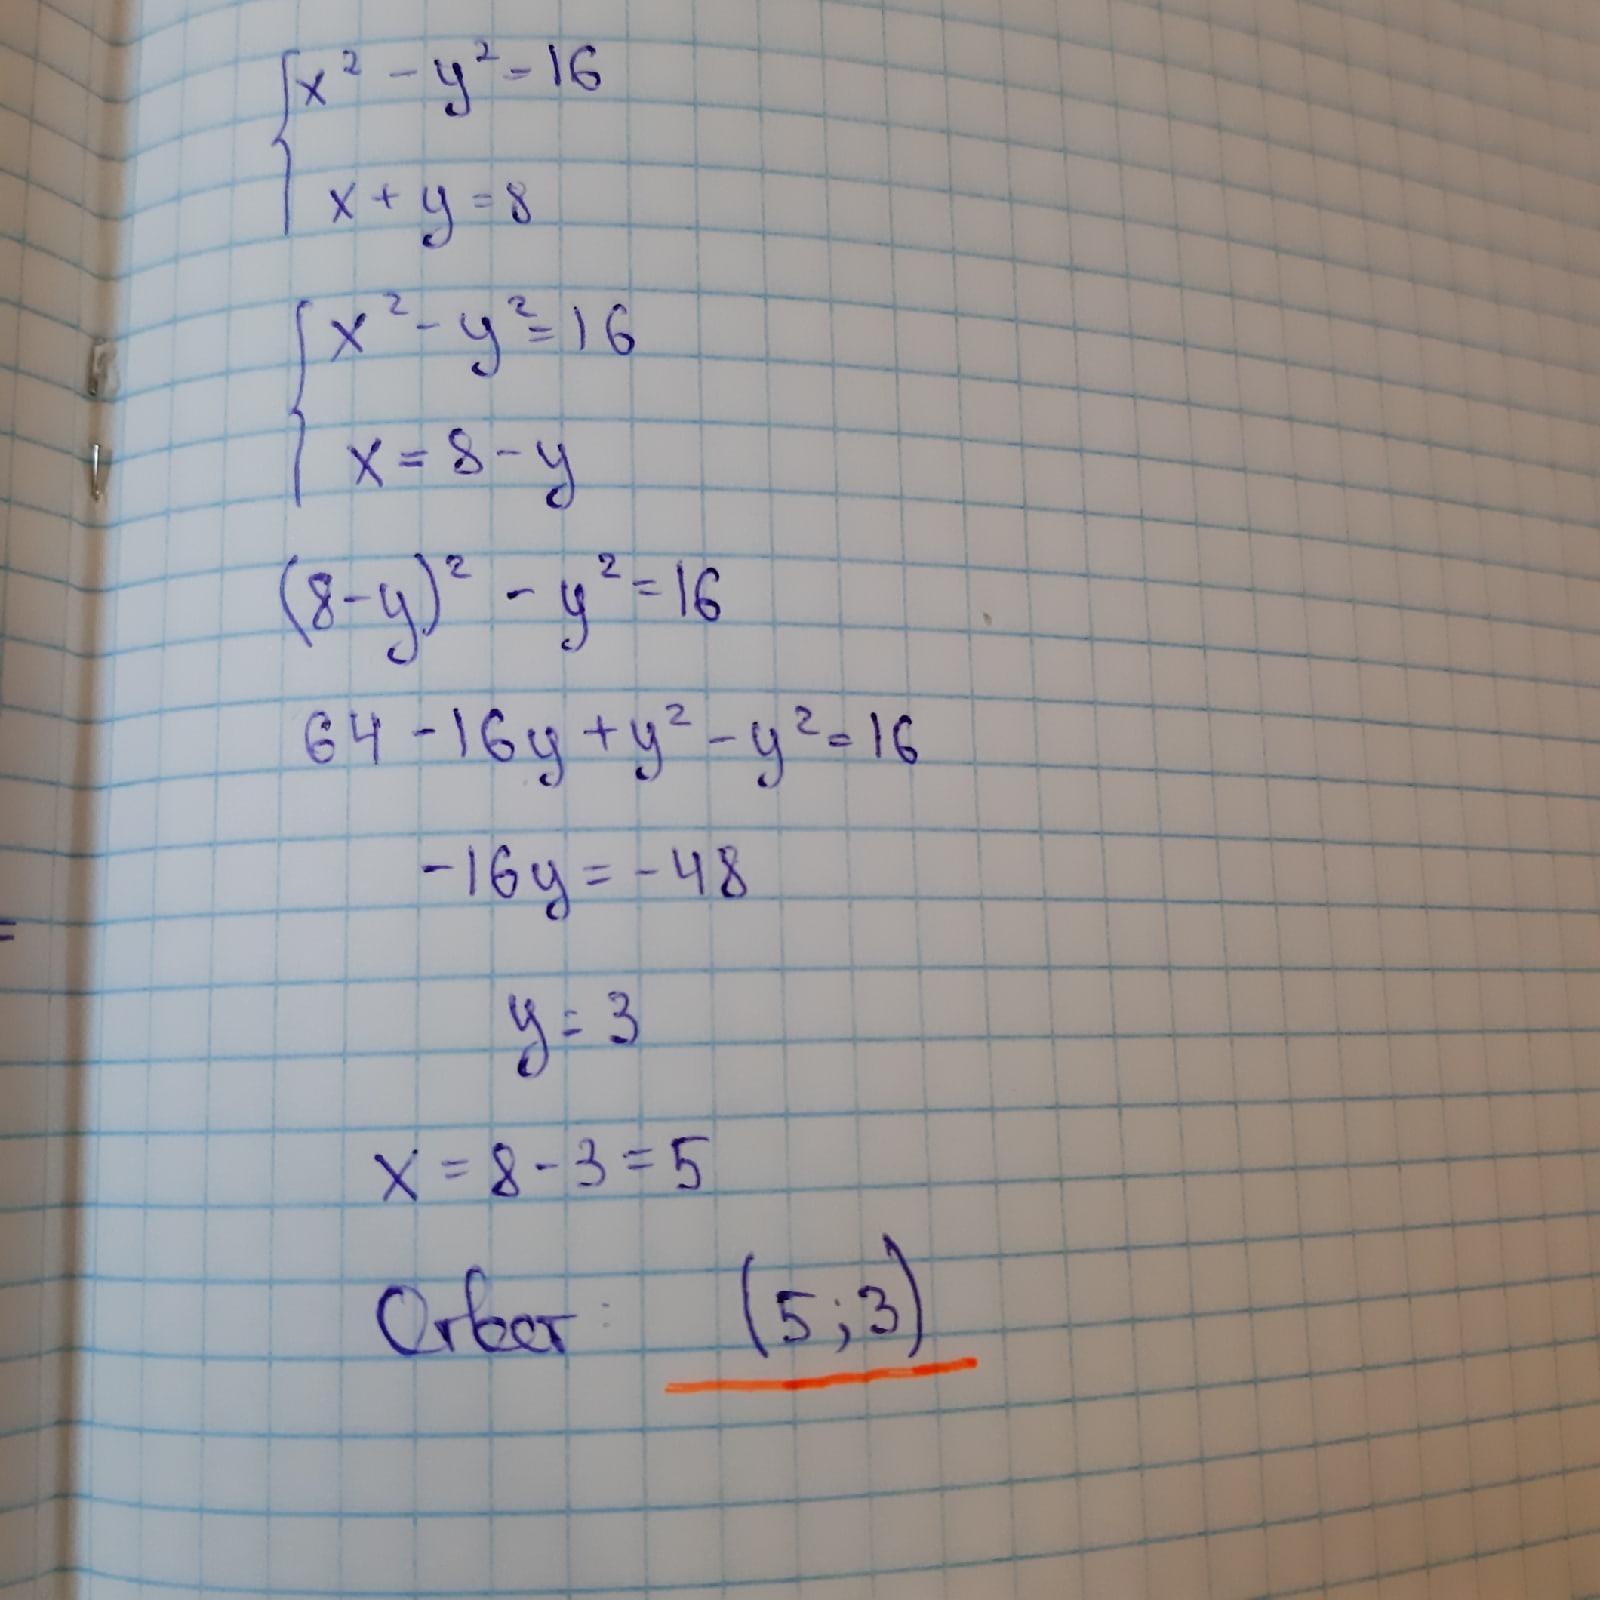 x² - y² = 16
x + y = 8
x² - y² = 16
x = 8 - y
(8-y)² - y² = 16
64 - 16y + y² - y² = 16
-16y = -48
y = 3
x = 8 - 3 = 5
Ответ: (5; 3)
=